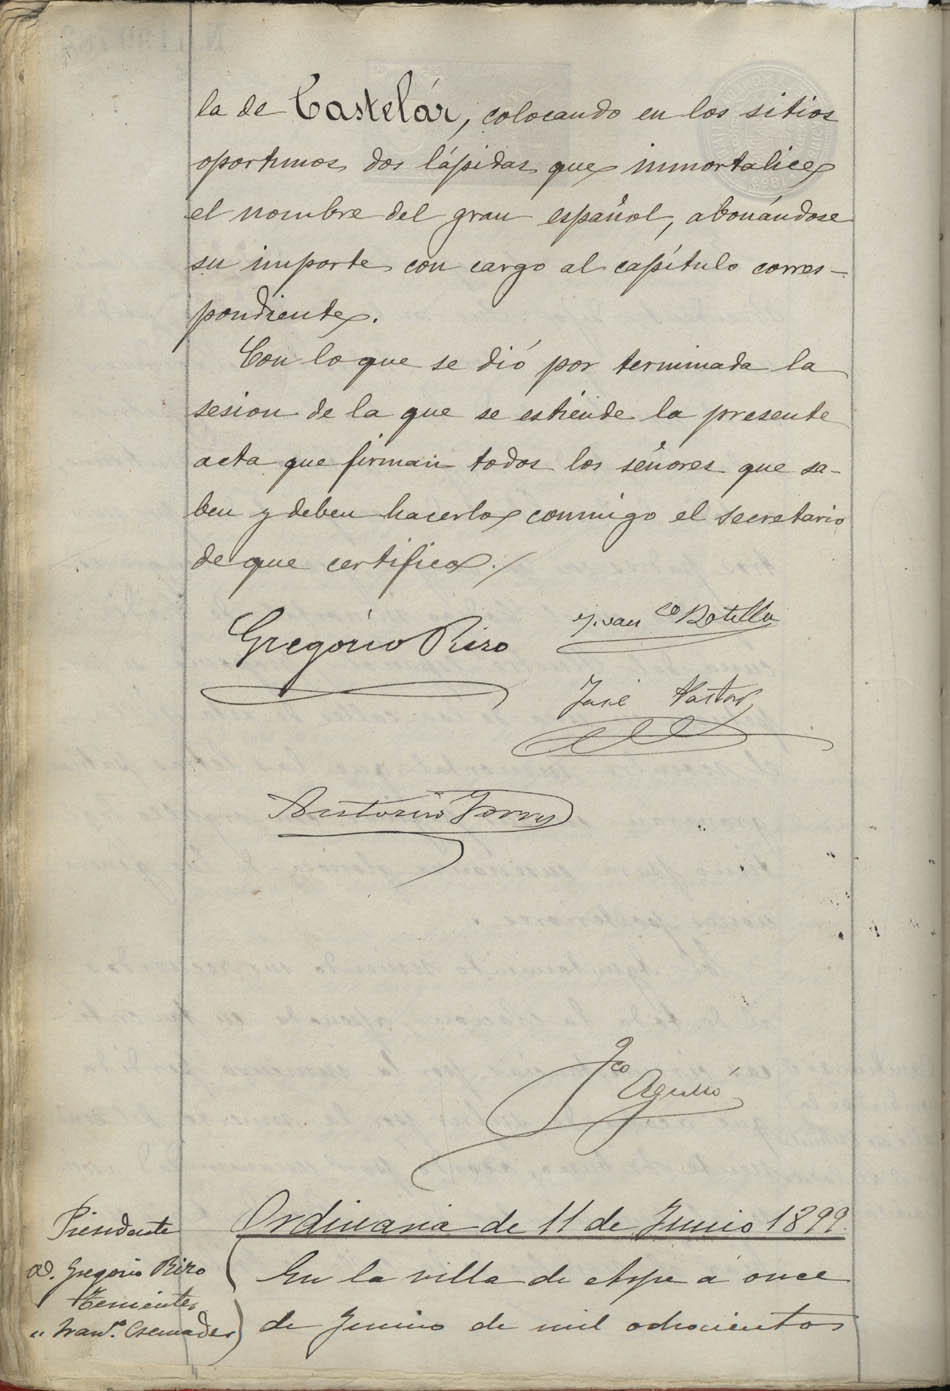 la de Castelár, colocando en los sitios
oportunos dos lápidas que inmortalice
el nombre del gran español, abonándose
su importe con cargo al capítulo corres-
pondiente.
Con lo que se dió por terminada la
sesion de la que se estiende la presente
acta que firman todos los señores que sa-
ben y deben hacerlo, conmigo el secretario
de que certifico./
Gregorio Rizo
Franco Botella
José Pastor
Antonio
Fco Agulló
Ordinaria de 11 de Junio 1899.
Presidente
D. Gregorio Rizo
Tenientes
" Franco Cremades
En la villa de Aspe á once
de Junio de mil ochocientos